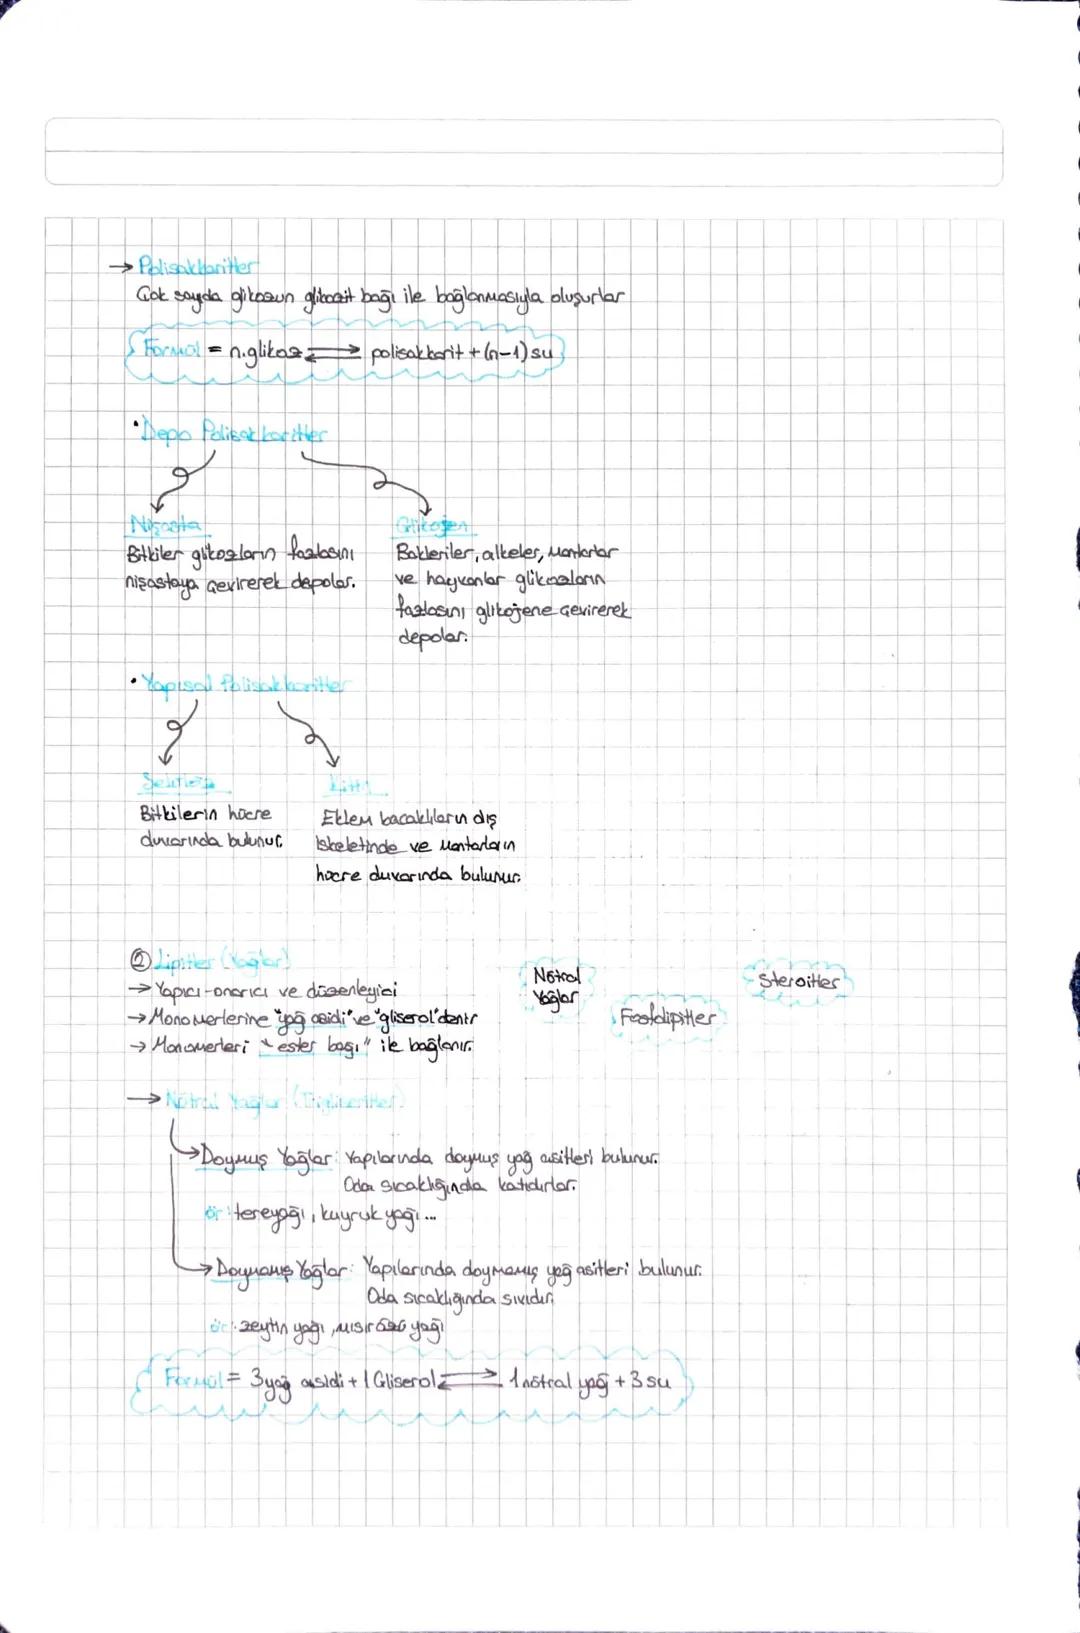 → Polisakkaritler
Çok sayıda glikozun glikozit bağı ile bağlanmasıyla oluşurlar
Formül = n.glikoz ⇄ polisakkarit + (n-1) su
• Depo Polisakkaritler
Nişasta
Bitkiler glikozların fazlasını
nişastaya çevirerek depolar.
Glikojen
Bakteriler, alkeler, Mantarlar
ve hayvanlar glikozların
fazlasını glikojene çevirerek
depolar.
• Yapısal Polisakkaritler
Selüloz
Bitkilerin hücre
duvarında bulunur.
Kitin
Eklem bacaklıların dış
iskeletinde ve Mantarların
hücre duvarında bulunur.
② Lipitler (Yağlar)
→ Yapıcı-onarıcı ve düzenleyici
→ Monomerlerine "yağ asidi" ve "gliserol" denir
→ Monomerleri "ester bağı" ile bağlanır.
Nötral
Yağlar
Fosfolipitler
Steroitler
→ Nötral Yağlar (Trigliseritler)
→ Doymuş Yağlar: Yapılarında doymuş yağ asitleri bulunur.
Oda sıcaklığında katıdırlar.
ör: tereyağı, kuyruk yağı...
→ Doymamış Yağlar: Yapılarında doymamış yağ asitleri bulunur.
Oda sıcaklığında sıvıdır.
ör: zeytin yağı, mısır özü yağı
Formül = 3 yağ asidi + 1 Gliserol ⇄ 1 nötral yağ + 3 su